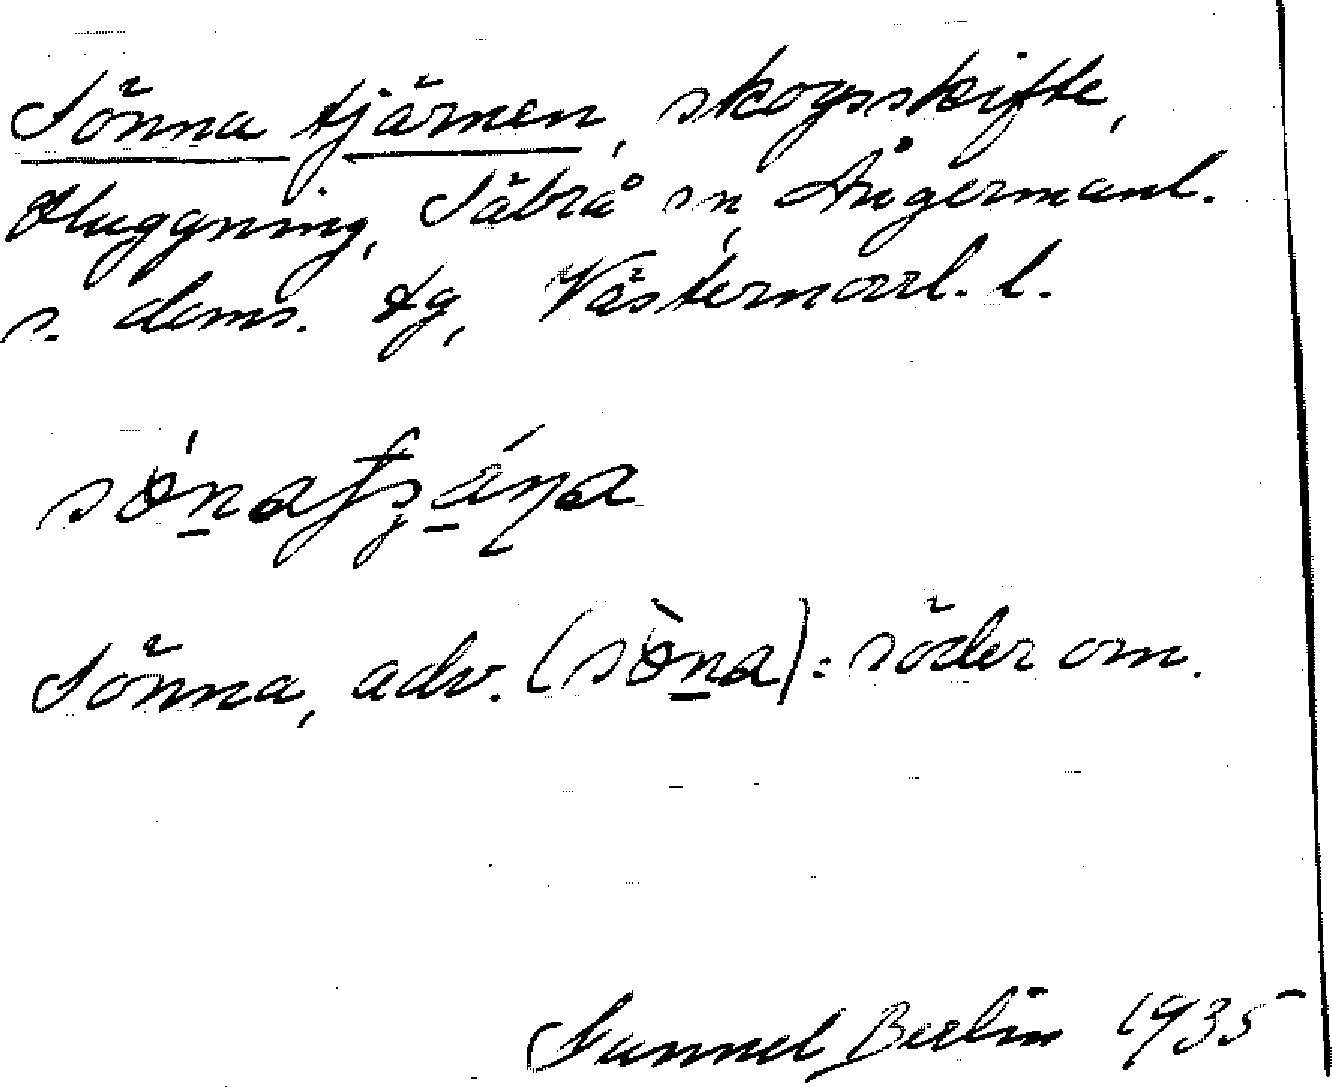 Sönna tjärnen, skogsskifte,
Huggning, Säbrå sn, Ångermanl.
s. doms. tg, Västernorrl. l.
Sönna, adv. (sòna): söder om.
Samuel Berlin 1935